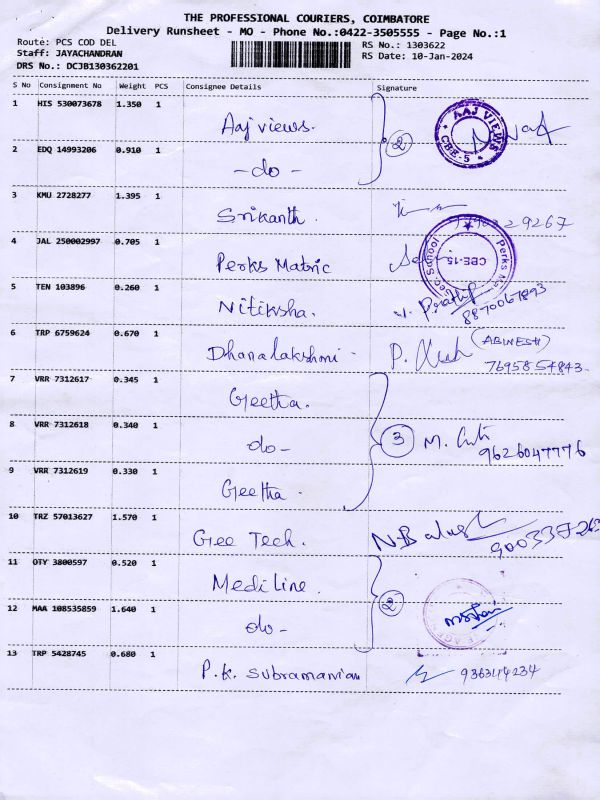 THE PROFESSIONAL COURIERS, COIMBATORE
Delivery Runsheet - MO - Phone No.:0422-3505555 - Page No.:1
Route: PCS COD DEL RS No.: 1303622
Staff: JAYACHANDRAN RS Date: 10-Jan-2024
DRS No.: DCJB130362201
S No Consignment No Weight PCS Consignee Details Signature
1 HIS 530073678 1.350 1 Aaj views. 2 AAJ VIEWS CBE-5
2 EDQ 14993206 0.910 1 -do-
3 KMU 2728277 1.395 1 Srikanth.
4 JAL 250002997 0.705 1 Perks Matric Perks School CBE-15
5 TEN 103896 0.260 1 Nitiksha. 8870067893
6 TRP 6759624 0.670 1 Dhanalakshmi - P. (ABINESH) 7695854843.
7 VRR 7312617 0.345 1 Geetha.
8 VRR 7312618 0.340 1 do- 3 M. 9626047776
9 VRR 7312619 0.330 1 Geetha.
10 TRZ 57013627 1.570 1 Gee Tech.
11 OTY 3800597 0.520 1 Mediline.
12 MAA 108535859 1.640 1 do- 2
13 TRP 5428745 0.680 1 P.K. Subramanian